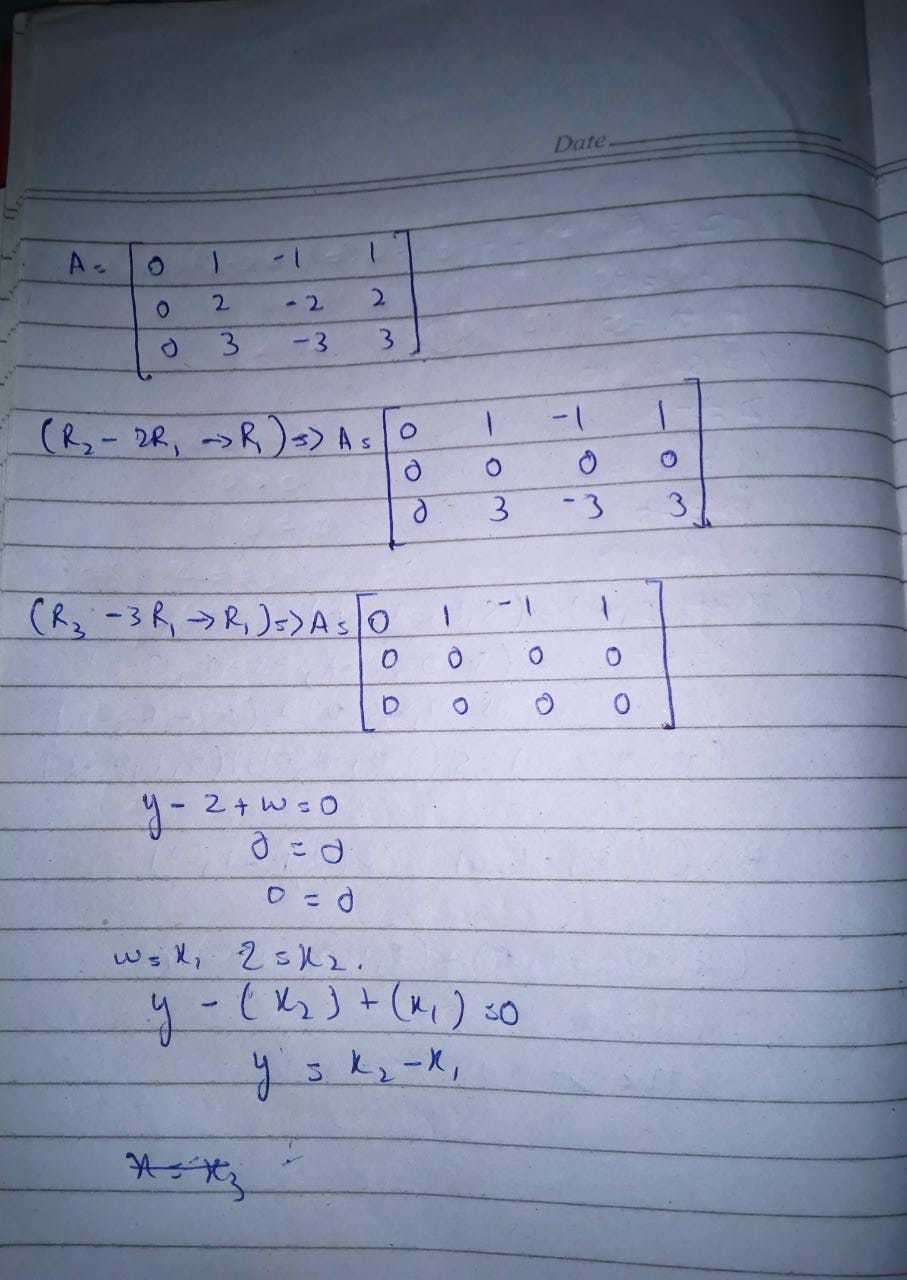 Date
A = [0 1 -1 1
0 2 -2 2
0 3 -3 3]
(R₂ - 2R₁ → R₁) => A = [0 1 -1 1
0 0 0 0
0 3 -3 3]
(R₃ - 3R₁ → R₁) => A = [0 1 -1 1
0 0 0 0
0 0 0 0]
y - z + w = 0
0 = 0
0 = 0
w = x₁ z = x₂.
y - (x₂) + (x₁) = 0
y = x₂ - x₁
x = x₃